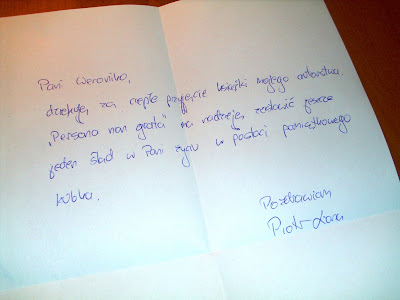 Pani Weroniko,
dziękuję za ciepłe przyjęcie książki mojego autorstwa.
„Persona non grata” ma nadzieję zostawić jeszcze
jeden ślad w Pani życiu w postaci pamiątkowego
kubka.
Pozdrawiam
Piotr